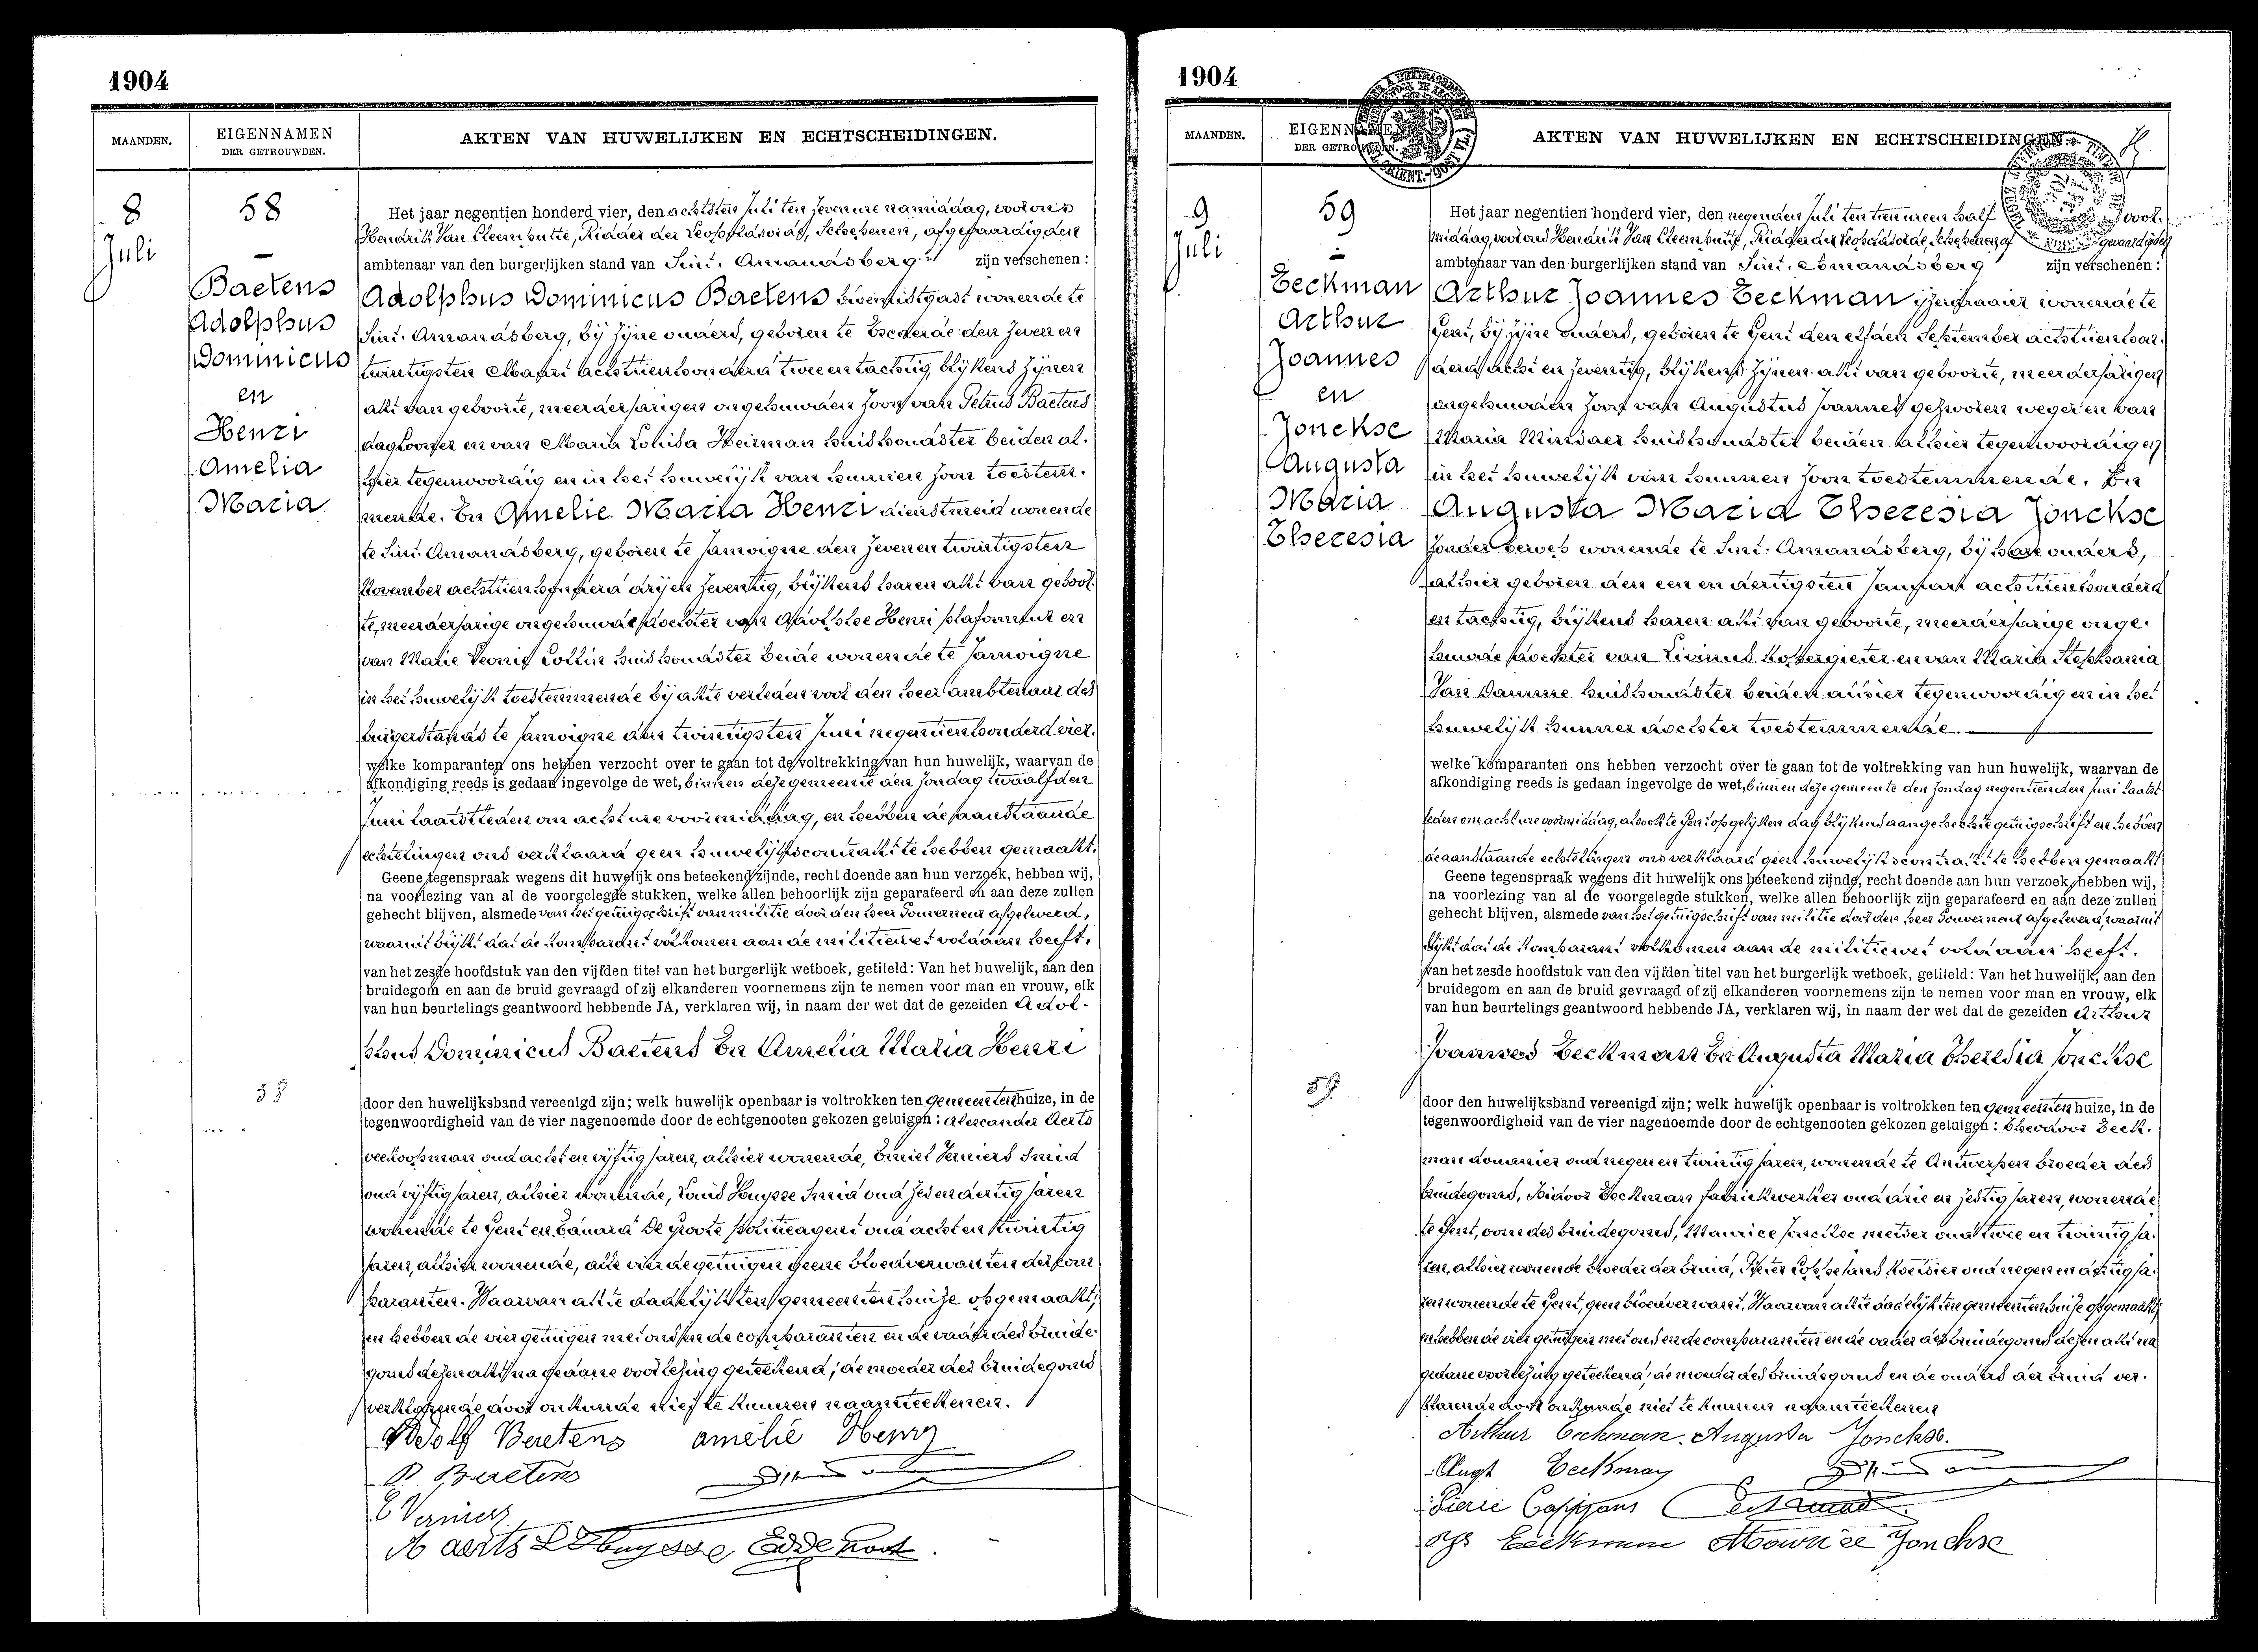 1904
MAANDEN.
EIGENNAMEN
DER GETROUWDEN.
AKTEN VAN HUWELIJKEN EN ECHTSCHEIDINGEN.
8
Juli
58
Baetens
Adolphus
Dominicus
en
Henri
Amelia
Maria
Het jaar negentien honderd vier, den achtsten Juli ten zeven ure namiddag, voor ons
Hendrik Van Cleemputte, Ridder der Leopoldsorde, Schepenen, afgevaardigden
ambtenaar van den burgerlijken stand van Sint. Amandsberg zijn verschenen:
Adolphus Dominicus Baetens wonende te
Sint. Amandsberg, bij zijne ouders, geboren te den zeven en
twintigsten Maart achttienhonderd twee en tachtig, blijkens zijnen
akt van geboorte, meerderjarigen ongehuwden zoon van Petrus Baetens
daglooner en van Maria Louisa Heirman huishoudster beiden al-
hier tegenwoordig en in het huwelijk van hunnen zoon toestem-
mende. En Amelie Maria Henri dienstmeid wonende
te Sint. Amandsberg, geboren te Jamoigne den zeven en twintigsten
November achttienhonderd drij en zeventig, blijkens haren akt van geboor-
te, meerderjarige ongehuwde dochter van Adolphe Henri plafonneur en
van Marie Leonie Collin huishoudster beide wonende te Jamoigne
in het huwelijk toestemmende bij akte verleden voor den heer ambtenaar des
burgerstands te Jamoigne den twintigsten Juni negentienhonderd vier.
welke komparanten ons hebben verzocht over te gaan tot de voltrekking van hun huwelijk, waarvan de
afkondiging reeds is gedaan ingevolge de wet, binnen deze gemeente den zondag twaalfden
Juni laatstleden om acht ure voormiddag, en hebben de aanstaande
echtelingen ons verklaard geen huwelijkscontrakt te hebben gemaakt.
Geene tegenspraak wegens dit huwelijk ons beteekend zijnde, recht doende aan hun verzoek, hebben wij,
na voorlezing van al de voorgelegde stukken, welke allen behoorlijk zijn geparafeerd en aan deze zullen
gehecht blijven, alsmede van het getuigschrift van militie door den heer Gouverneur afgeleverd,
waaruit blijkt dat de komparant volkomen aan de militiewet voldaan heeft.
van het zesde hoofdstuk van den vijfden titel van het burgerlijk wetboek, getiteld: Van het huwelijk, aan den
bruidegom en aan de bruid gevraagd of zij elkanderen voornemens zijn te nemen voor man en vrouw, elk
van hun beurtelings geantwoord hebbende JA, verklaren wij, in naam der wet dat de gezeiden Adol-
phus Dominicus Baetens En Amelia Maria Henri
58
door den huwelijksband vereenigd zijn; welk huwelijk openbaar is voltrokken ten gemeentenhuize, in de
tegenwoordigheid van de vier nagenoemde door de echtgenooten gekozen getuigen: Alexander Aerts
veekoopman oud acht en vijftig jaren, alhier wonende, Emiel Verniers smid
oud vijftig jaren, alhier wonende, Louis Huysse smid oud zes en dertig jaren
wonende te Gent en Edward De Groote politieagent oud acht en twintig
jaren, alhier wonende, alle vier de getuigen geene bloedverwanten der kom
paranten. Waarvan akte dadelijk ten gemeentenhuize opgemaakt,
en hebben de vier getuigen met ons en de comparanten en de vader des bruide-
goms dezen akt na gedane voorlezing geteekend, de moeder des bruidegoms
verklarende door onkunde niet te kunnen naamteekenen.
Adolf Baetens amélie Henry
P. Baetens
E Vernierz
A aerts L Huysse Ed de Groot
1904
MAANDEN.
EIGENNAMEN
DER GETROUWDEN.
AKTEN VAN HUWELIJKEN EN ECHTSCHEIDINGEN.
9
Juli
59
Eeckman
Arthur
Joannes
en
Jonckse
Augusta
Maria
Theresia
Het jaar negentien honderd vier, den negenden Juli ten tien uren half voor-
middag, voor ons Hendrik Van Cleemputte, Ridder der Leopoldsorde, Schepenen af gevaardigden
ambtenaar van den burgerlijken stand van Sint. Amandsberg zijn verschenen:
Arthur Joannes Eeckman wonende te
Gent, bij zijne ouders, geboren te Gent den elfden September achttienhon-
derd acht en zeventig, blijkens zijnen akt van geboorte, meerderjarigen
ongehuwden zoon van Augustus Joannes gezworen weger en van
Maria Mindaer huishoudster beiden alhier tegenwoordig en
in het huwelijk van hunnen zoon toestemmende. En
Augusta Maria Theresia Jonckse
zonder beroep wonende te Sint. Amandsberg, bij hare ouders,
alhier geboren den een en dertigsten Januari achttienhonderd
en tachtig, blijkens haren akt van geboorte, meerderjarige onge-
huwde dochter van Livinus en van Maria Stephania
Van Damme huishoudster beiden alhier tegenwoordig en in het
huwelijk hunner dochter toestemmende.
welke komparanten ons hebben verzocht over te gaan tot de voltrekking van hun huwelijk, waarvan de
afkondiging reeds is gedaan ingevolge de wet, binnen deze gemeente den zondag negentienden Juni laatst-
leden om acht ure voormiddag, alsook te Gent opgelijken dag blijkens aangehechte getuigschrift en hebben
de aanstaande echtelingen ons verklaard geen huwelijkscontrakt te hebben gemaakt
Geene tegenspraak wegens dit huwelijk ons beteekend zijnde, recht doende aan hun verzoek, hebben wij,
na voorlezing van al de voorgelegde stukken, welke allen behoorlijk zijn geparafeerd en aan deze zullen
gehecht blijven, alsmede van het getuigschrift van militie door den heer Gouverneur afgeleverd, waaruit
blijkt dat de komparant volkomen aan de militiewet voldaan heeft.
van het zesde hoofdstuk van den vijfden titel van het burgerlijk wetboek, getiteld: Van het huwelijk, aan den
bruidegom en aan de bruid gevraagd of zij elkanderen voornemens zijn te nemen voor man en vrouw, elk
van hun beurtelings geantwoord hebbende JA, verklaren wij, in naam der wet dat de gezeiden Arthur
Joannes Eeckman En Augusta Maria Theresia Jonckse
59
door den huwelijksband vereenigd zijn; welk huwelijk openbaar is voltrokken ten gemeentenhuize, in de
tegenwoordigheid van de vier nagenoemde door de echtgenooten gekozen getuigen: Theodoor Eeck-
man domanier oud negen en twintig jaren, wonende te Antwerpen broeder des
bruidegoms, Isidoor Eeckman fabriekwerker oud drie en zestig jaren, wonende
te Gent, oom des bruidegoms, Maurice Jonckse metser oud twee en twintig ja-
ren, alhier wonende broeder der bruid, Pieter Coppejans koetsier oud negen en dertig ja-
ren wonende te Gent, geen bloedverwant. Waarvan akte dadelijk ten gemeentenhuize opgemaakt,
en hebben de vier getuigen met ons en de comparanten en de vader des bruidegoms dezen akt na
gedane voorlezing geteekend, de moeder des bruidegoms en de ouders der bruid ver-
klarende door onkunde niet te kunnen naamteekenen
Arthur Eeckman. Augusta Jonckse.
Augt Eeckman
Pierre Coppejans
Eeckman Maurice Jonckse